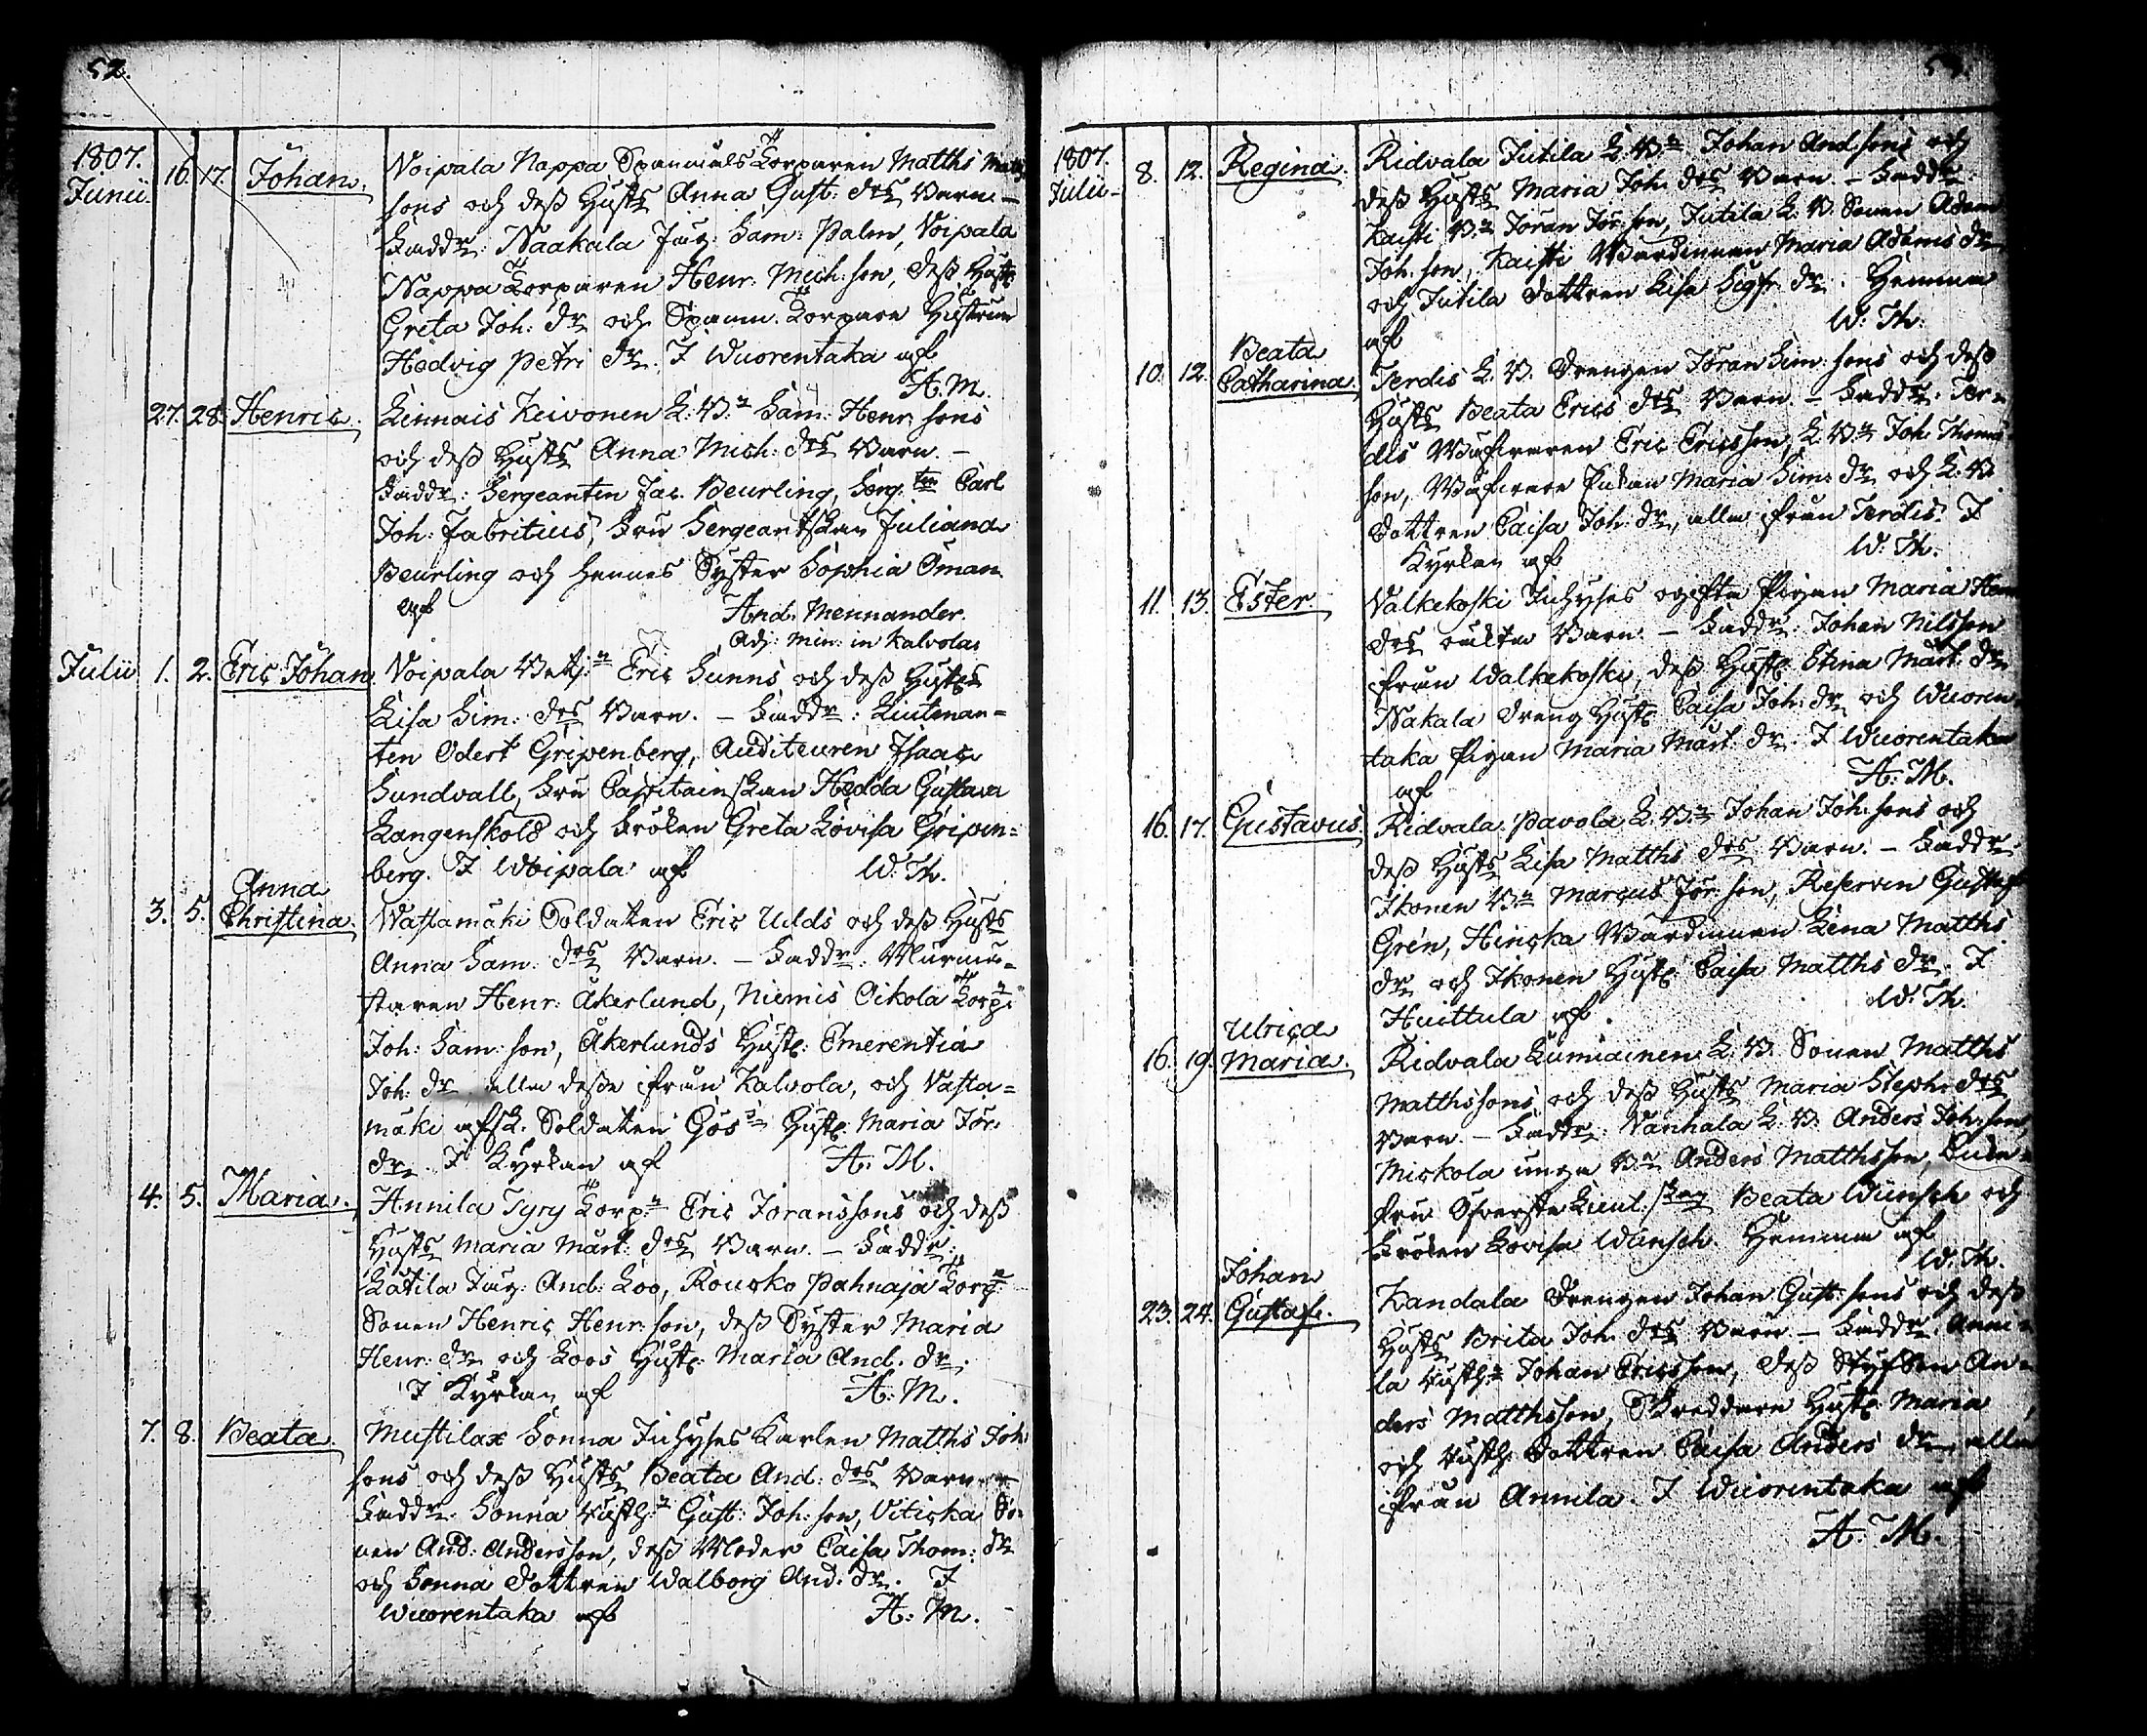 52.
1807.
Junii.
16. 17. Johan. Voipala Nappa Spanmåls Torparen Matths Matths
sons och deß Hustrs Anna Gust: drs Barn. –
Faddr: Naakala Jäg: Sam: Palm, Voipala
Nappa Torparen Henr: Mich: son, deß Hustr:
Greta Joh: dr och Spanm. Torpare Hustrun
Hedvig Petri dr. I Wuorentaka af
A. M.
27. 28. Henric. Lennais Keivonen L: B:n Sam: Henr: sons
och deß Hustrs Anna Mich: drs Barn. –
Faddr: Sergeanten Jac. Beurling, Serg:ten Carl
Joh: Fabritius, Fru Sergeantskan Juliana
Beurling och hennes Syster Sophia Öman.
af And: Mennander.
Adj: Min: in Kalvola
Julii 1. 2. Eric Johan. Voipala Betj:n Eric Sunns och deß Hustrs
Lisa Sim: drs Barn. – Faddr: Lieutnan=
ten Odert Gripenberg, Auditeuren Isaac
Sundvall, Fru Capitainskan Hedda Gustava
Langenskold och Fröken Greta Lovisa Gripen=
berg. I Woipala af W: Th.
3. 5. Anna
Christina. Wastamäki Soldaten Eric Ulds och deß Hustrs
Anna Sam: drs Barn. – Faddr: Murmä=
staren Henr: Åkerlund, Niemis Oikola Torp:n
Joh: Sam: son, Åkerlunds Hustr: Emerentia
Joh: dr alla deße ifrån Kalvola, och Vasta=
mäki afsk. Soldaten Gös's Hustr: Maria Jör:
dr. I Kyrkan af A: M.
4. 5. Maria. Annila Tyry Torp:n Eric Joranssons och deß
Hustrs Maria Mårt: drs Barn. – Faddr:
Latila Jäg: And: Loo, Rouko Pahnaja Torp:n
Sonen Henric Henr: son, deß Syster Maria
Henr: dr och Loos Hustr: Maria And. dr.
I Kyrkan af A: M.
7. 8. Beata. Mustilax Sonna Inhyses Karlen Matths Joh:
sons och deß Hustrs Beata And: drs Barn. –
Faddr: Sonna Rusth:n Gust: Joh: son, Viticka So=
nen And: Andersson, deß Moder Caisa Thom: dr
och Sonna Dottren Walborg And: dr. I
Wuorentaka af A: M.
53.
1807.
Julii.
8. 12. Regina. Ridvala Jutila L: B:n Johan And: sons och
deß Hustrs Maria Joh: drs Barn. – Faddr:
Kaisti B:n Jöran Jör: son, Jutila L: B. Sonen Adam
Joh: son, Kaisti Wärdinnan Maria Adams dr
och Jutila dottren Lisa Sigfr: dr. Hemma
af W: Th:
10. 12. Beata
Catharina. Terdis L: B. Drengen Jöran Sim: sons och deß
Hustrs Beata Erics drs Barn. – Faddr: Ter=
dis Ericsson, L: B:n Joh: Thoms
son, Maria Sim: dr och L: B.
dottren Caisa Joh: dr, alla ifrån Terdis. I
Kyrkan af W: Th.
11. 13. Ester. Valkekoski Inhyses ogifta Pigan Maria Henr
drs oäkta Barn. – Faddr: Johan Nilsson
ifrån Walkekoski, deß Hustr: Stina Mårt: dr
Nakala dreng Hustr: Caisa Joh: dr och Wuoren=
taka Pigan Maria Mårt: dr. I Wuorentaka
af A: M.
16. 17. Gustavus. Ridvala Pavola L: B:n Johan Joh: sons och
deß Hustrs Lisa Matths drs Barn. – Faddr:
Ikonen B:n Marcus Jör: son, Reserven Gustaf
Grén, Hincka Wärdinnan Lena Matths
dr och Ikonen Hustr: Caisa Matths dr. I
Huittula af. W: Th.
16. 19. Ulrica
Maria. Ridvala Lumiainen L: B. Sonen Matths
Matthssons och deß Hustrs Maria Steph: drs
Barn. – Faddr: Vanhala L: B: Anders Joh: son,
Mickola unga B:n Anders Matthsson, Enke=
fru Öfverste Lieut:skan Beata Wünsch och
Fröken Lovisa Wünsch. Hemma af
W. Th.
23. 24. Johan
Gustaf. Kandala Drengen Johan Gust: sons och deß
Hustrs Brita Joh: drs Barn. – Faddr: Anni=
la Rusth:n Johan Ericsson, deß Styfson An=
ders Matthsson, Skräddare Hustr: Maria
och Rusth: dottren Caisa Anders dr alla
ifrån Annila. I Wuorentaka af
A. M.